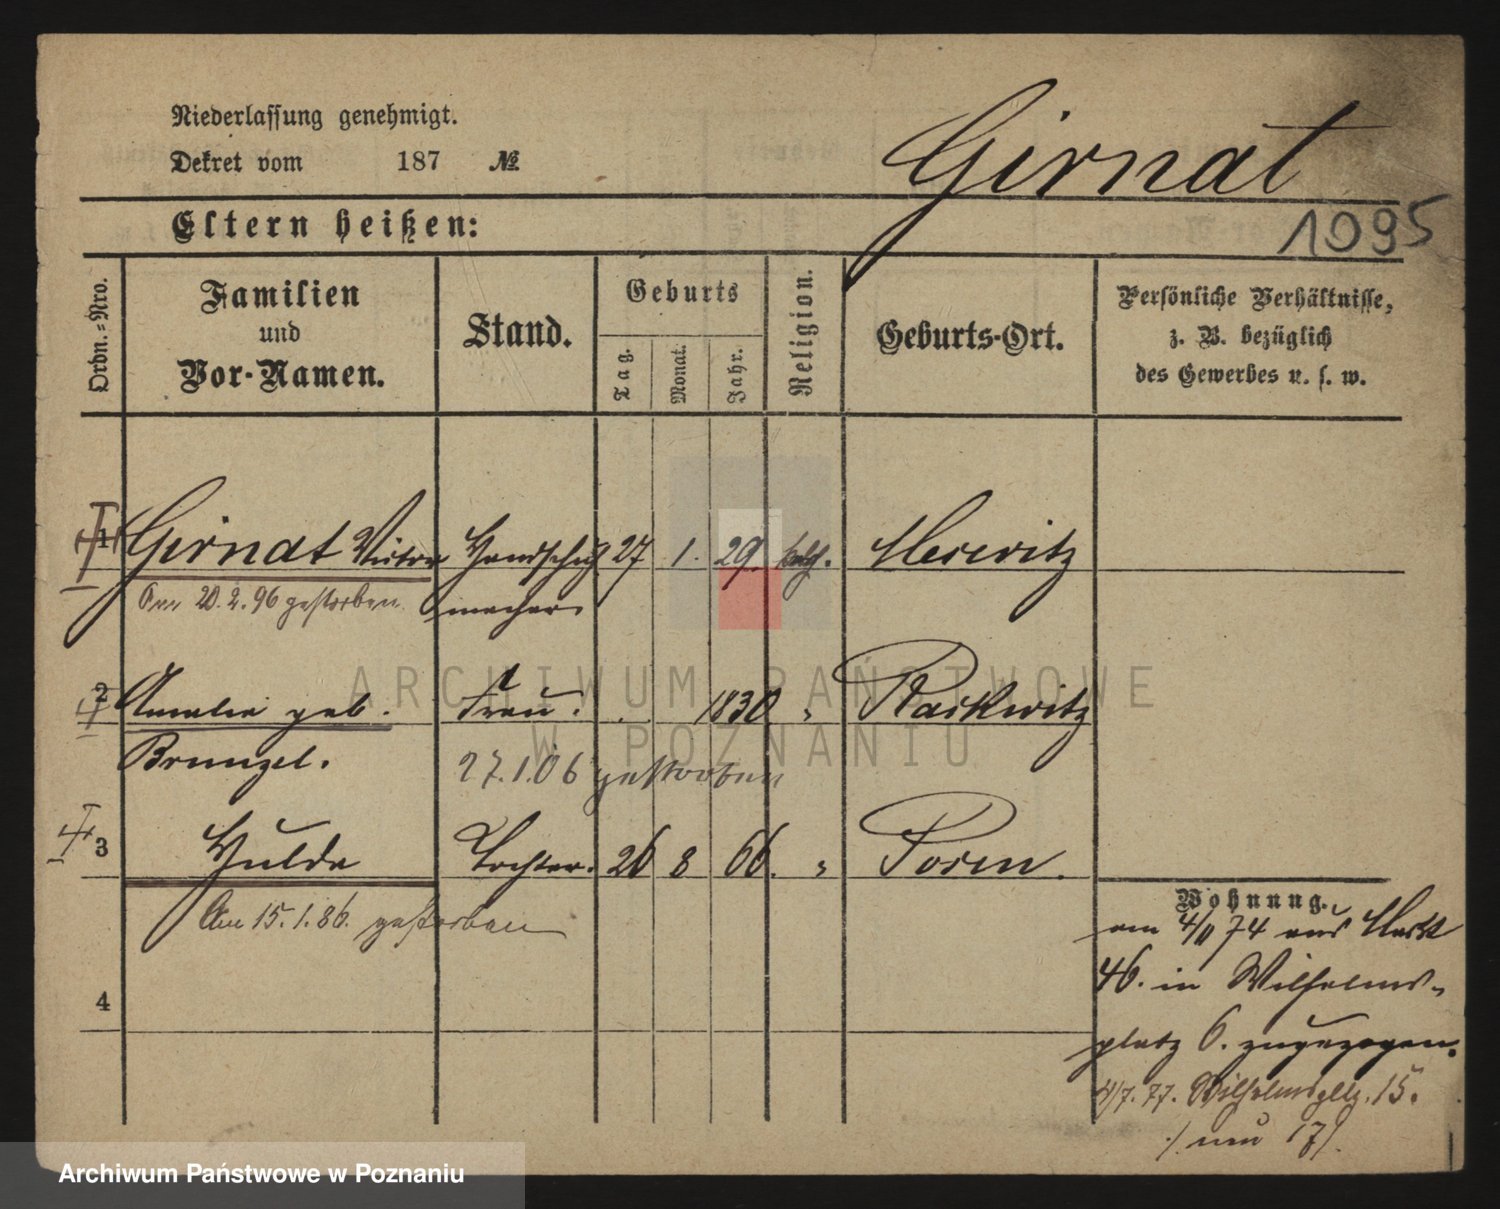 Niederlassung genehmigt.
Dekret vom 187 №
Girnat
Eltern heißen:
1095
Ordn.=Nro.
Familien
und
Vor-Namen.
Stand.
Geburts
Tag.
Monat.
Jahr.
Religion.
Geburts-Ort.
Persönliche Verhältnisse,
z. B. bezüglich
des Gewerbes u. s. w.
1 Girnat Victor Handschuh 27 1. 29. kath.
Am 20.2.96 gestorben macher
2 Amalie geb. Frau. 1830 " Rackwitz
Brunzel. 27.1.06 gestorben
3 Hulda Tochter. 26 8 66. " Posen.
Am 15.1.86. gestorben
4
Wohnung.
am 4/11 74 aus Markt
46. in Wilhelms-
platz 6. zugezogen.
4/7. 77. Wilhelmspltz. 15.
./. neu 17/.
ARCHIWUM PAŃSTWOWE
W POZNANIU
Archiwum Państwowe w Poznaniu